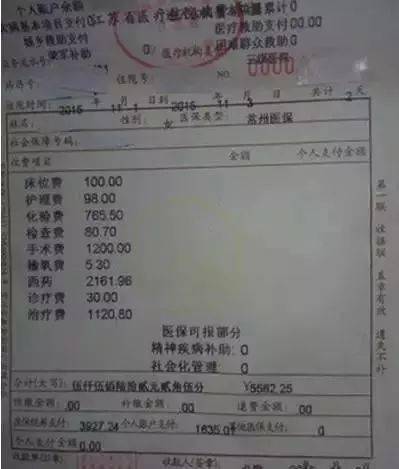 个人账户余额
大病基本项目支付0 江苏省医疗 累计0
城乡救助支付 医疗救助支付00.00
荣军补助 0 医疗机构 困难群众救助0
住院号: NO. 0000
住院时间: 2015 年 11 月 1 日到 2015 年 11 月 3 日 共计 2 天
姓名: 性别: 女 医保类型: 常州医保
社会保障号码:
收费项目 金额 个人支付金额
床位费 100.00
护理费 98.00
化验费 765.50
检查费 80.70
手术费 1200.00
输氧费 5.30
西药 2161.96
诊疗费 30.00
治疗费 1120.80
医保可报部分
精神疾病补助: 0
社会化管理: 0
合计(大写): 伍仟伍佰陆拾贰元贰角伍分 ¥5562.25
预缴金额: .00 补缴金额: .00 退费金额: .00
医保统筹支付: 3927.24 个人账户支付: 1635.01 其他医保支付: 0
个人支付金额0.00
收款单位(章): 收款人(签章):
第一联 收据联 盖章有效 遗失不补